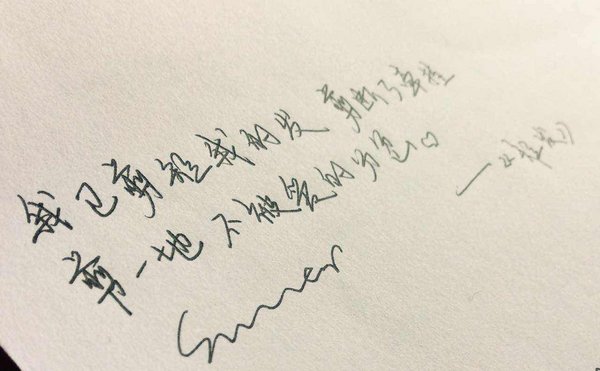 我已剪短我的发 剪断了牵挂
剪一地 不被爱的分叉
Summer